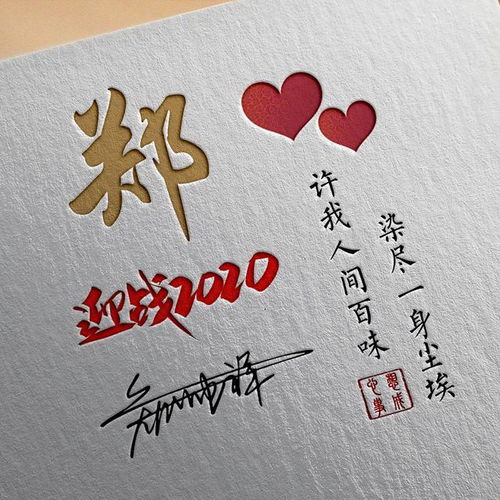 郑
迎战2020
许我人间百味
染尽一身尘埃
心想事成